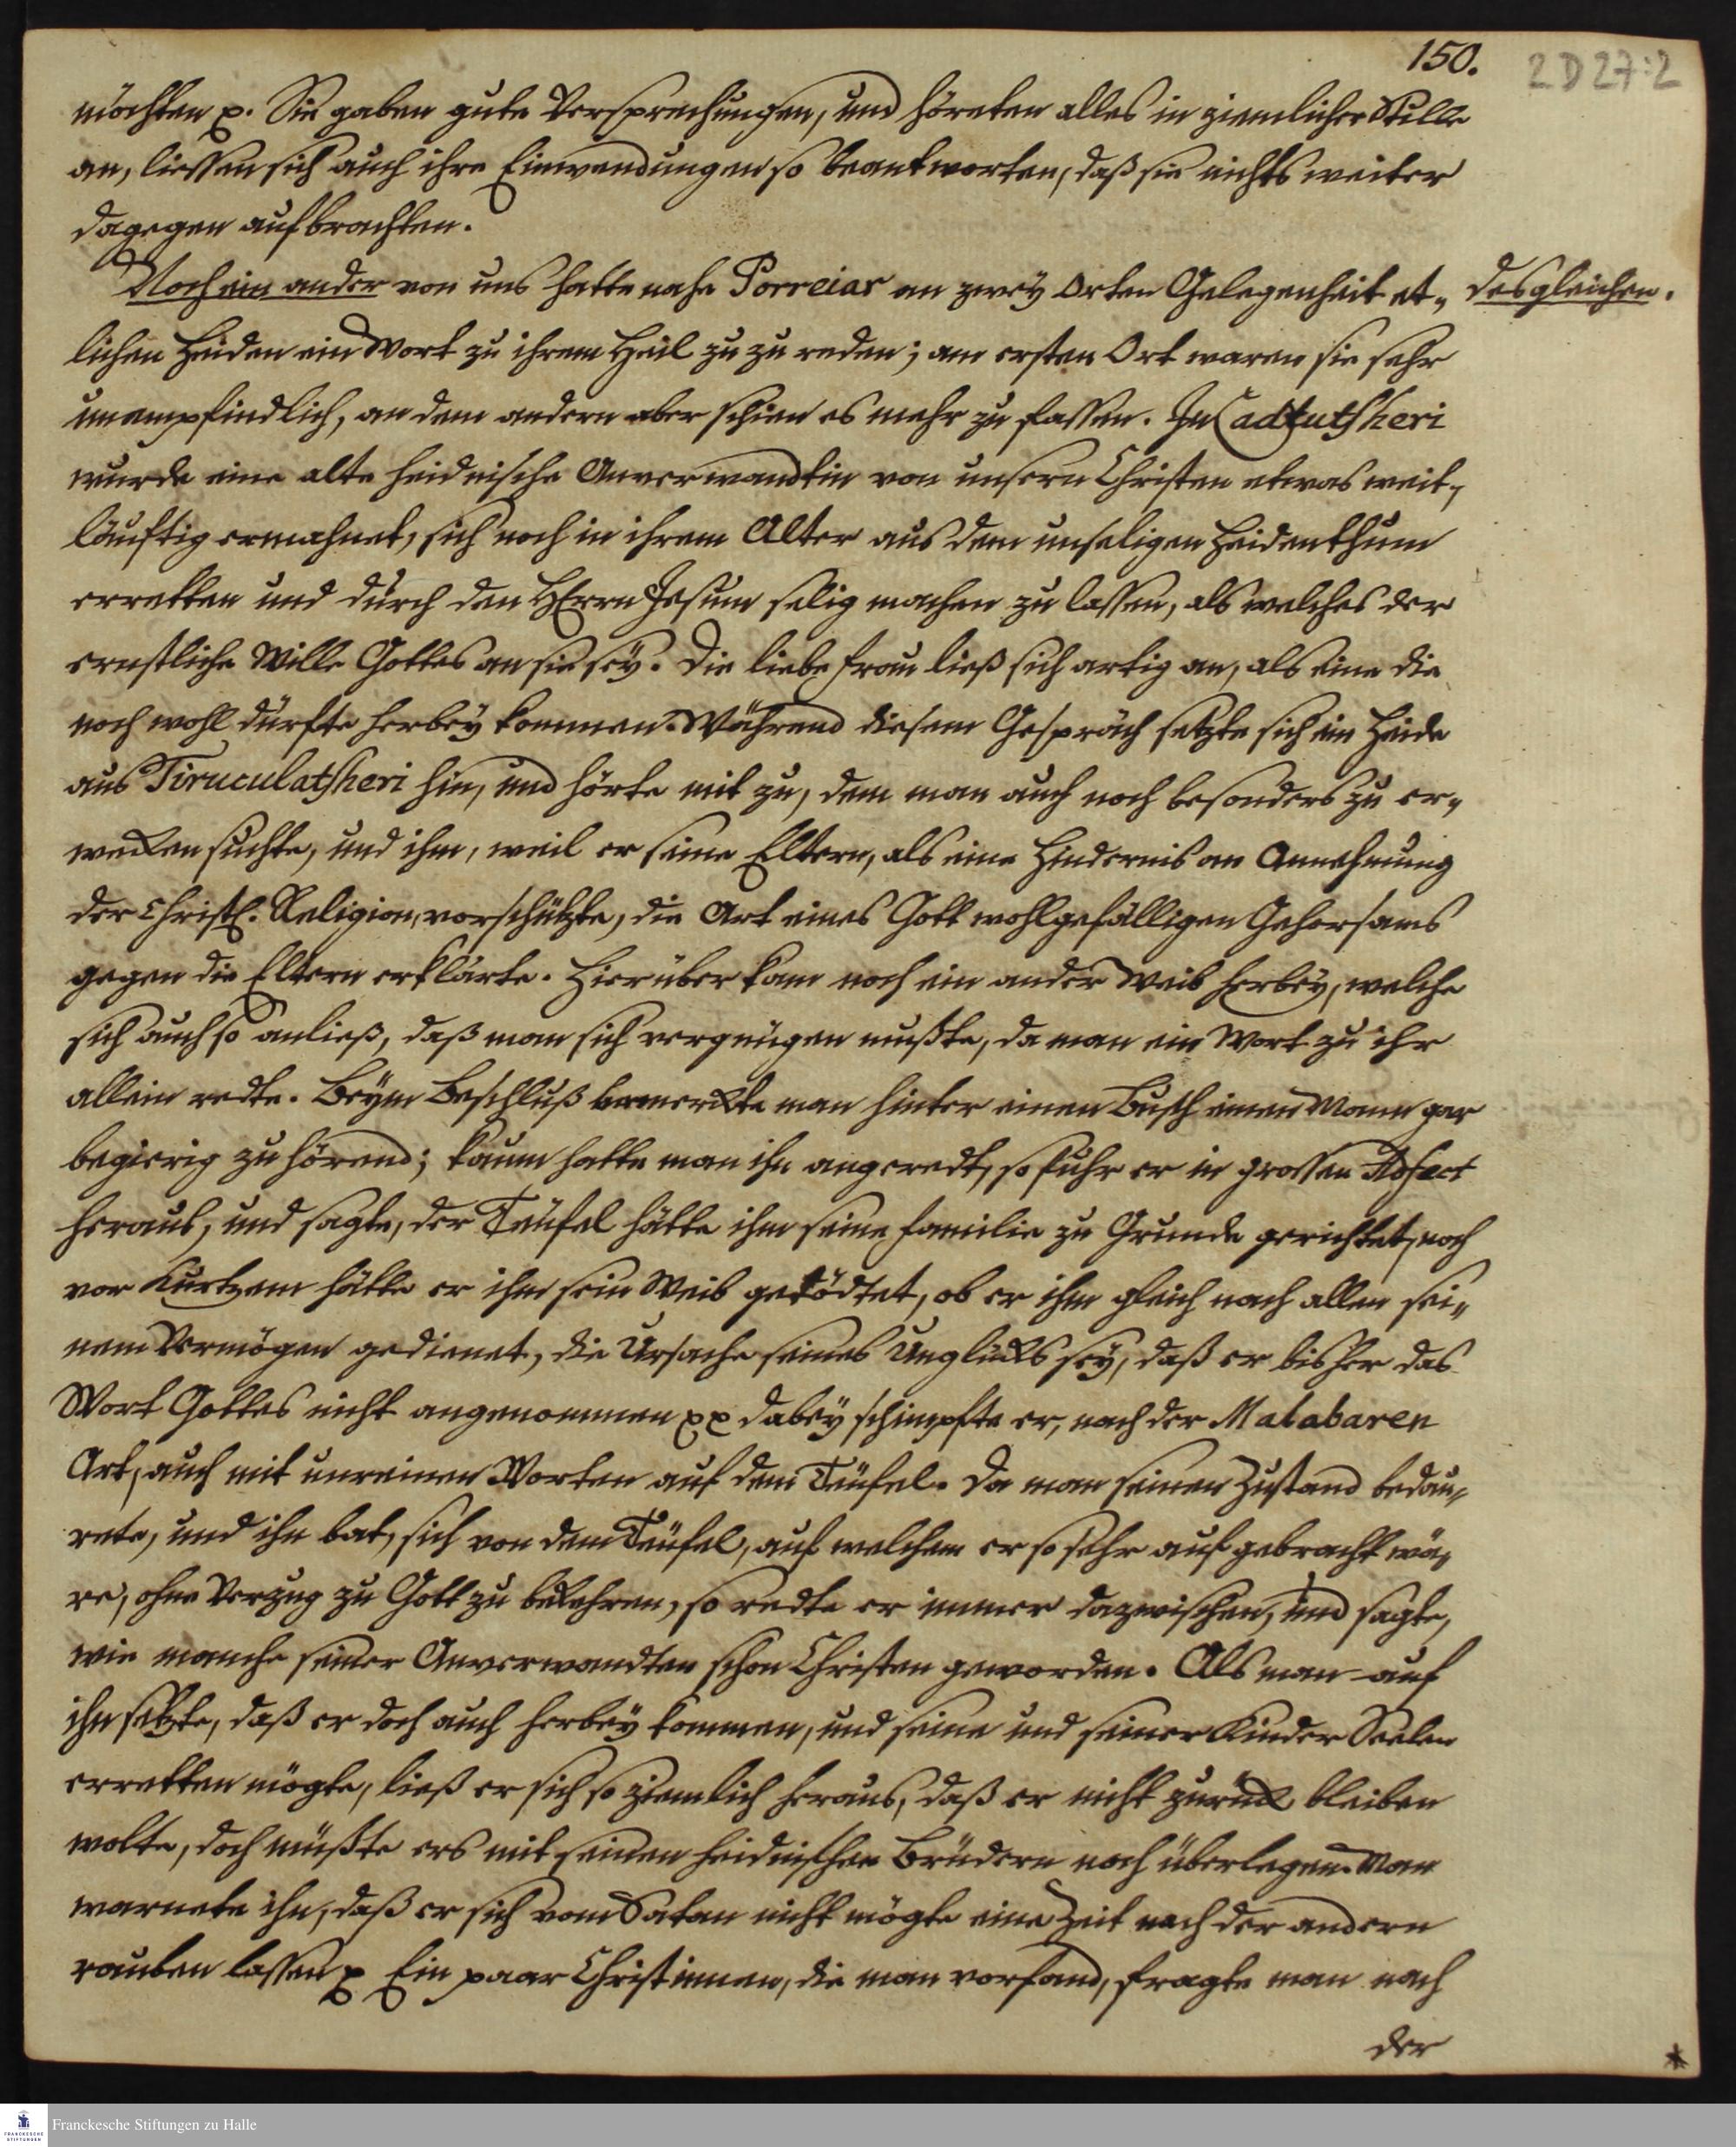 150.
2 D 27:2
möchten p. Sie gaben gute Versprechungen, und höreten alles in ziemlicher Stille
an, liessen sich auch ihre Einwendungen so beantworten, daß sie nichts weiter
dagegen aufbrachten.
Noch ein ander von uns hatte nahe Porreiar an zwey Orten Gelegenheit et-
desgleichen.
lichen Heiden ein Wort zu ihrem Heil zu zu reden; am ersten Ort waren sie sehr
unempfindlich, an dem andern aber schien es mehr zu fassen. In Cadtutsheri
wurde eine alte heidnische Anverwandtin von unsern Christen etwas weit-
läuftig ermahnet, sich noch in ihrem Alter aus dem unseligen Heidenthum
erretten und durch den HErrn Jesum selig machen zu lassen, als welches der
ernstliche Wille Gottes an sie sey. Die liebe Frau ließ sich artig an, als eine die
noch wohl dürfte herbey kommen. Während diesem Gespräch setzte sich ein Heide
aus Tiruculatsheri hin, und hörte mit zu, dem man auch noch besonders zu er-
wecken suchte, und ihm, weil er seine Eltern, als eine Hindernis an Annehmung
der Christl. Religion, vorschützte, die Art eines Gott wohlgefälligen Gehorsams
gegen die Eltern erklärte. Hierüber kam noch ein ander Weib herbey, welche
sich auch so anließ, daß man sich vergnügen mußte, da man ein Wort zu ihr
allein redte. Beym Beschluß bemerckte man hinter einen Busch einen Mann gar
begierig zu hörend; kaum hatte man ihn angeredt, so fuhr er in grossen Adfect
heraus, und sagte, der Teüfel hätte ihm seine Familie zu Grunde gerichtet, noch
vor Kurtzem hätte er ihm sein Weib getödtet, ob er ihm gleich nach allen sei-
nem Vermögen gedienet, die Ursache seines Unglücks sey, daß er bisher das
Wort Gottes nicht angenommen pp dabey schimpfte er, nach der Malabaren
Art, auch mit unreinen Worten auf dem Teüfel. Da man seinen Zustand bedau-
rete, und ihn bat, sich von dem Teüfel, auf welchem er so sehr aufgebracht wä-
re, ohne Verzug zu Gott zu bekehren, so redte er immer dazwischen, und sagte,
wie manche seiner Anverwandten schon Christen geworden. Als man auf
ihn setzte, daß er doch auch herbey kommen, und seine und seiner Kinder Seelen
erretten mögte, ließ er sich so ziemlich heraus, daß er nicht zurück bleiben
wolte, doch müßte ers mit seinen heidnischen Brüdern noch überlegen. Man
warnete ihn, daß er sich vom Satan nicht mögte eine Zeit nach der andern
rauben lassen p Ein paar Christinnen, die man vorfand, fragte man nach
der
Franckesche Stiftungen zu Halle